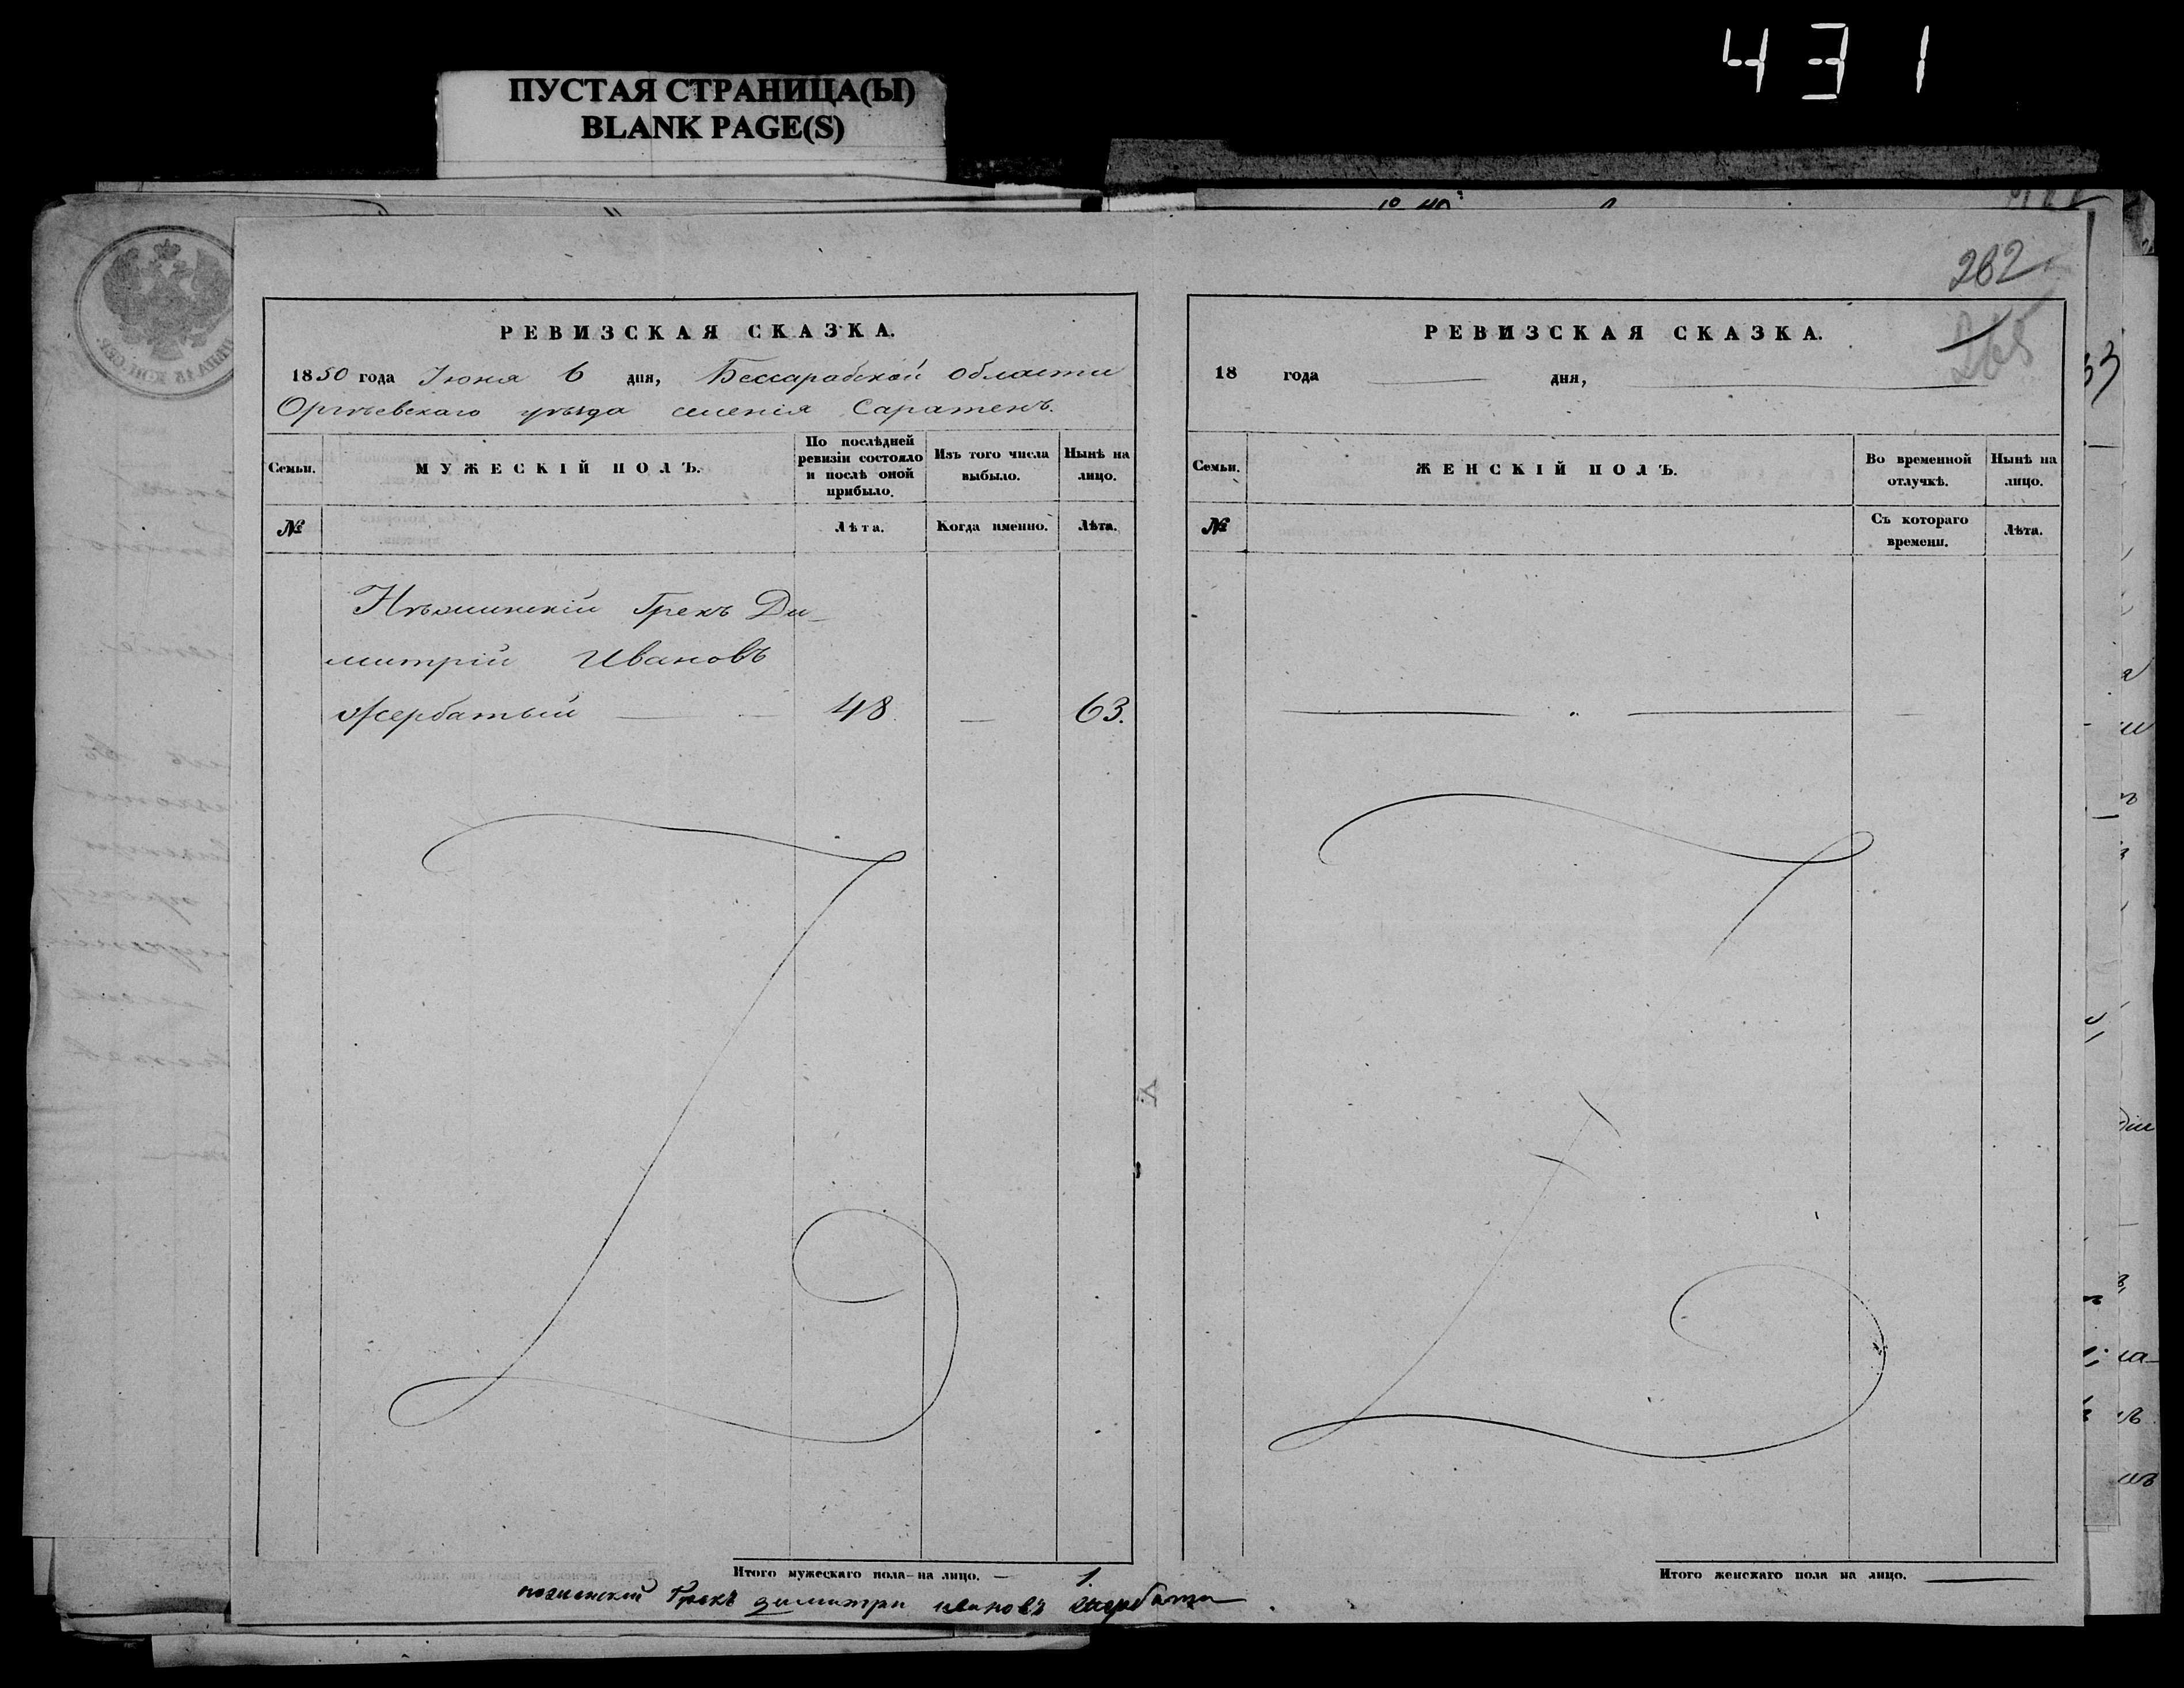 431
ПУСТАЯ СТРАНИЦА(Ы)
BLANK PAGE(S)
262
265
РЕВИЗСКАЯ СКАЗКА.
1850 года Июня 6 дня, Бессарабской области
Оргѣевскаго уѣзда селенія Саратенъ.
Семьи.
МУЖЕСКІЙ ПОЛЪ.
По послѣдней ревизіи состояло и послѣ оной прибыло.
Изъ того числа выбыло.
Нынѣ на лицо.
№
Лѣта.
Когда именно.
Лѣта.
Нѣжинскій Грекъ Ди-
митрій Ивановъ
Жербатый — 48 — 63.
Итого мужескаго пола на лицо. — 1.
Грекъ димитри ивановъ
РЕВИЗСКАЯ СКАЗКА.
18 года — дня, —
Семьи.
ЖЕНСКІЙ ПОЛЪ.
Во временной отлучкѣ.
Нынѣ на лицо.
№
Съ котораго времени.
Лѣта.
Итого женскаго пола на лицо. —